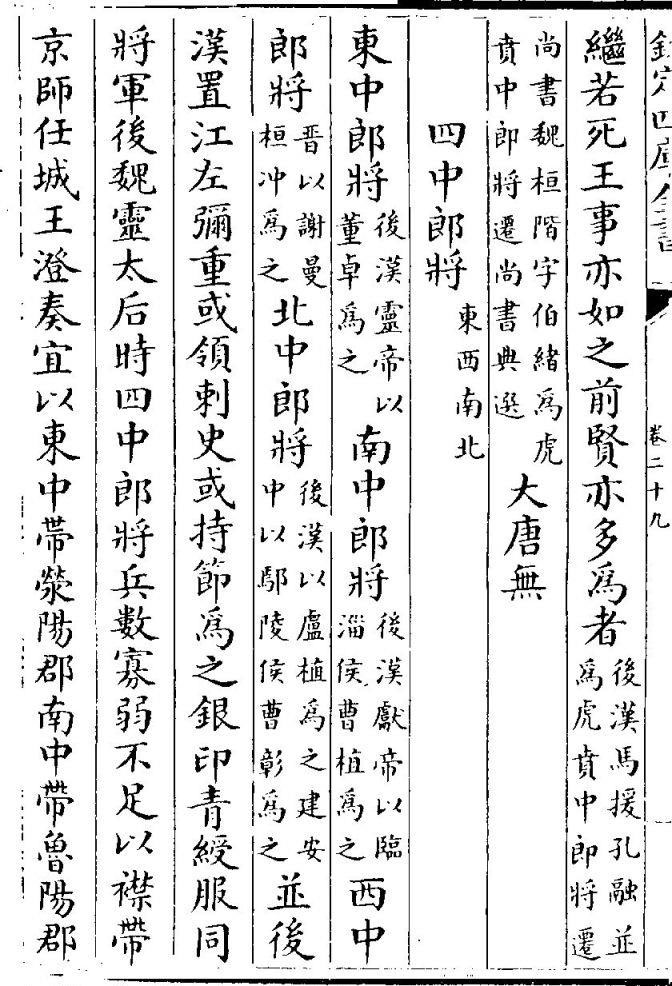 欽定四庫全書
卷二十九
繼若死王事亦如之前賢亦多為者後漢馬援孔融並為虎賁中郎將遷
尚書魏桓階字伯緒為虎賁中郎將遷尚書典選大唐無
四中郎將東西南北
東中郎將後漢靈帝以董卓為之南中郎將後漢獻帝以臨淄侯曹植為之西中
郎將晉以謝曼桓沖為之北中郎將後漢以盧植為之建安中以鄢陵侯曹彰為之並後
漢置江左彌重或領刺史或持節為之銀印青綬服同
將軍後魏靈太后時四中郎將兵數寡弱不足以襟帶
京師任城王澄奏宜以東中帶滎陽郡南中帶魯陽郡